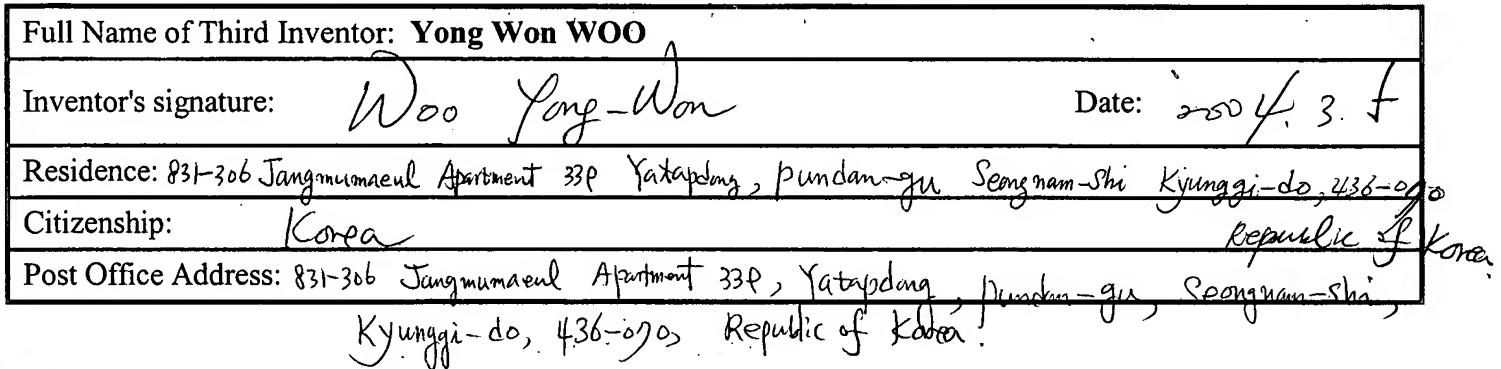 Full Name of Third Inventor: Yong Won WOO
Inventor's signature: Woo Yong-Won Date: 2004. 3. 5
Residence: 831-306 Jangmumaeul Apartment 33P Yatapdong, pundan-gu Seongnam-Shi Kyunggi-do, 436-070
Republic of Korea.
Citizenship: Korea
Post Office Address: 831-306 Jangmumaeul Apartment 33P, Yatapdong, pundan-gu, Seongnam-shi,
Kyunggi-do, 436-070, Republic of Korea.